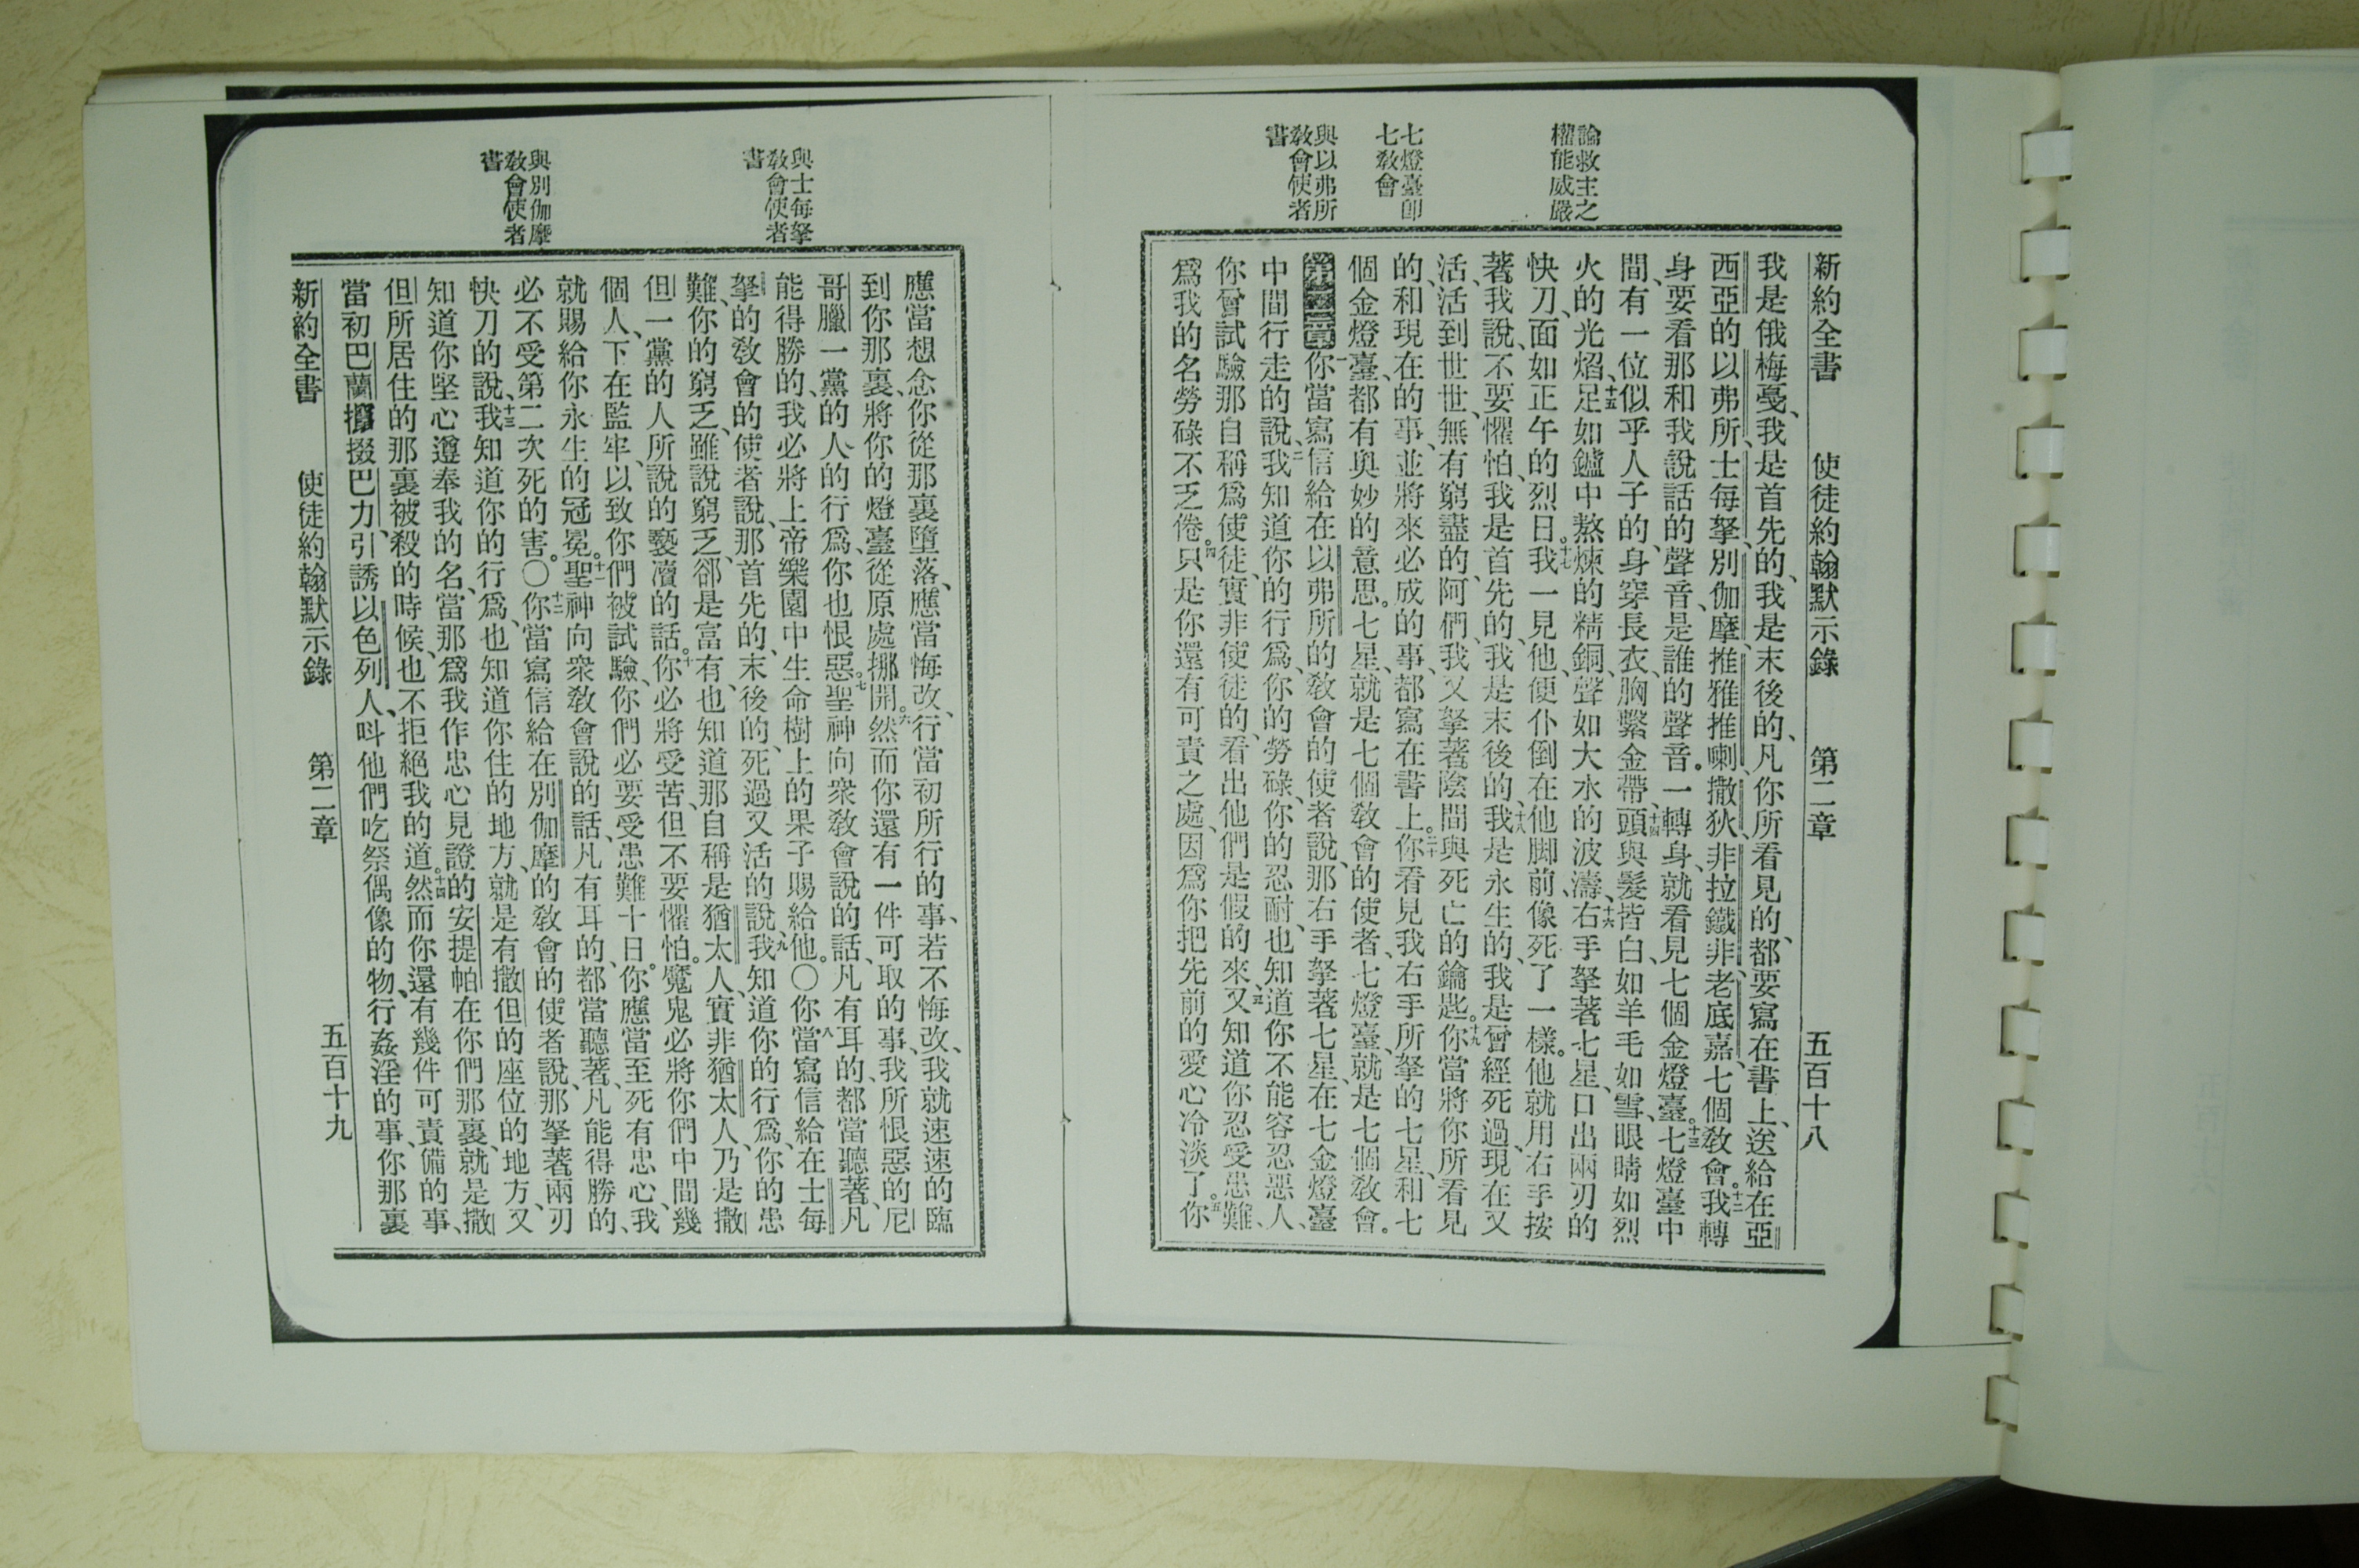 論救主之
權能威嚴
七燈臺卽
七敎會
與以弗所
敎會使者
書
新約全書 使徒約翰默示錄 第二章 五百十八
我是俄梅戛、我是首先的、我是末後的、凡你所看見的、都要寫在書上、送給在亞
西亞的以弗所、士每拏、別伽摩、推雅推喇、撒狄、非拉鐵非、老底嘉、七個敎會。十二我轉
身、要看那和我說話的聲音、是誰的聲音。一轉身、就看見七個金燈臺。十三七燈臺中
間、有一位似乎人子的、身穿長衣、胸繫金帶、十四頭與髮皆白、如羊毛如雪、眼睛如烈
火的光熖、十五足如鑪中熬煉的精銅、聲如大水的波濤、十六右手拏著七星、口出兩刃的
快刀、面如正午的烈日。十七我一見他、便仆倒在他脚前、像死了一樣。他就用右手按
著我說、不要懼怕、我是首先的、我是末後的、十八我是永生的、我是曾經死過、現在又
活、活到世世、無有窮盡的、阿們、我又拏著陰間與死亡的鑰匙。十九你當將你所看見
的、和現在的事、並將來必成的事、都寫在書上。二十你看見我右手所拏的七星、和七
個金燈臺、都有奧妙的意思。七星、就是七個敎會的使者、七燈臺、就是七個敎會。
第二章一你當寫信給在以弗所的敎會的使者說、那右手拏著七星、在七金燈臺
中間行走的說、二我知道你的行爲、你的勞碌、你的忍耐、也知道你不能容忍惡人、
你曾試驗那自稱爲使徒、實非使徒的、看出他們是假的來、五又知道你忍受患難、
爲我的名勞碌不乏倦。四只是你還有可責之處、因爲你把先前的愛心冷淡了。五你
與士每拏
敎會使者
書
與別伽摩
敎會使者
書
應當想念你從那裏墮落、應當悔改、行當初所行的事、若不悔改、我就速速的臨
到你那裏、將你的燈臺從原處挪開。六然而你還有一件可取的事、我所恨惡的尼
哥臘一黨的人的行爲、你也恨惡。七聖神向衆敎會說的話、凡有耳的、都當聽著、凡
能得勝的、我必將上帝樂園中生命樹上的果子賜給他。〇八你當寫信給在士每
拏的敎會的使者說、那首先的、末後的、死過又活的說、九我知道你的行爲、你的患
難、你的窮乏、雖說窮乏、卻是富有、也知道那自稱是猶太人、實非猶太人、乃是撒
但一黨的人所說的褻瀆的話。十你必將受苦、但不要懼怕。魔鬼必將你們中間幾
個人、下在監牢、以致你們被試驗、你們必要受患難十日。你應當至死有忠心、我
就賜給你永生的冠冕。十一聖神向衆敎會說的話、凡有耳的、都當聽著、凡能得勝的、
必不受第二次死的害。〇十二你當寫信給在別伽摩的敎會的使者說、那拏著兩刃
快刀的說、十三我知道你的行爲、也知道你住的地方、就是有撒但的座位的地方、又
知道你堅心遵奉我的名、當那爲我作忠心見證的安提帕在你們那裏、就是撒
但所居住的那裏被殺的時候、也不拒絕我的道。十四然而你還有幾件可責備的事、
當初巴蘭攛掇巴力、引誘以色列人、呌他們吃祭偶像的物、行姦淫的事、你那裏
新約全書 使徒約翰默示錄 第二章 五百十九